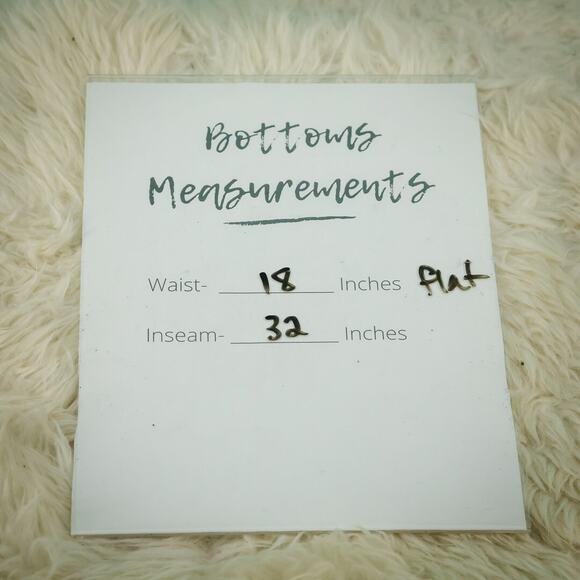 Bottoms
Measurements
Waist- 18 Inches flat
Inseam- 32 Inches